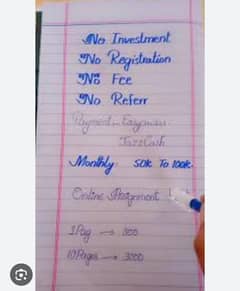 No Investment
No Registration
No Fee
No Referr
Payment
JazzCash
Monthly: 50k To 100k.
Online Assignment
1 Pag → 300
10 Pages → 3000